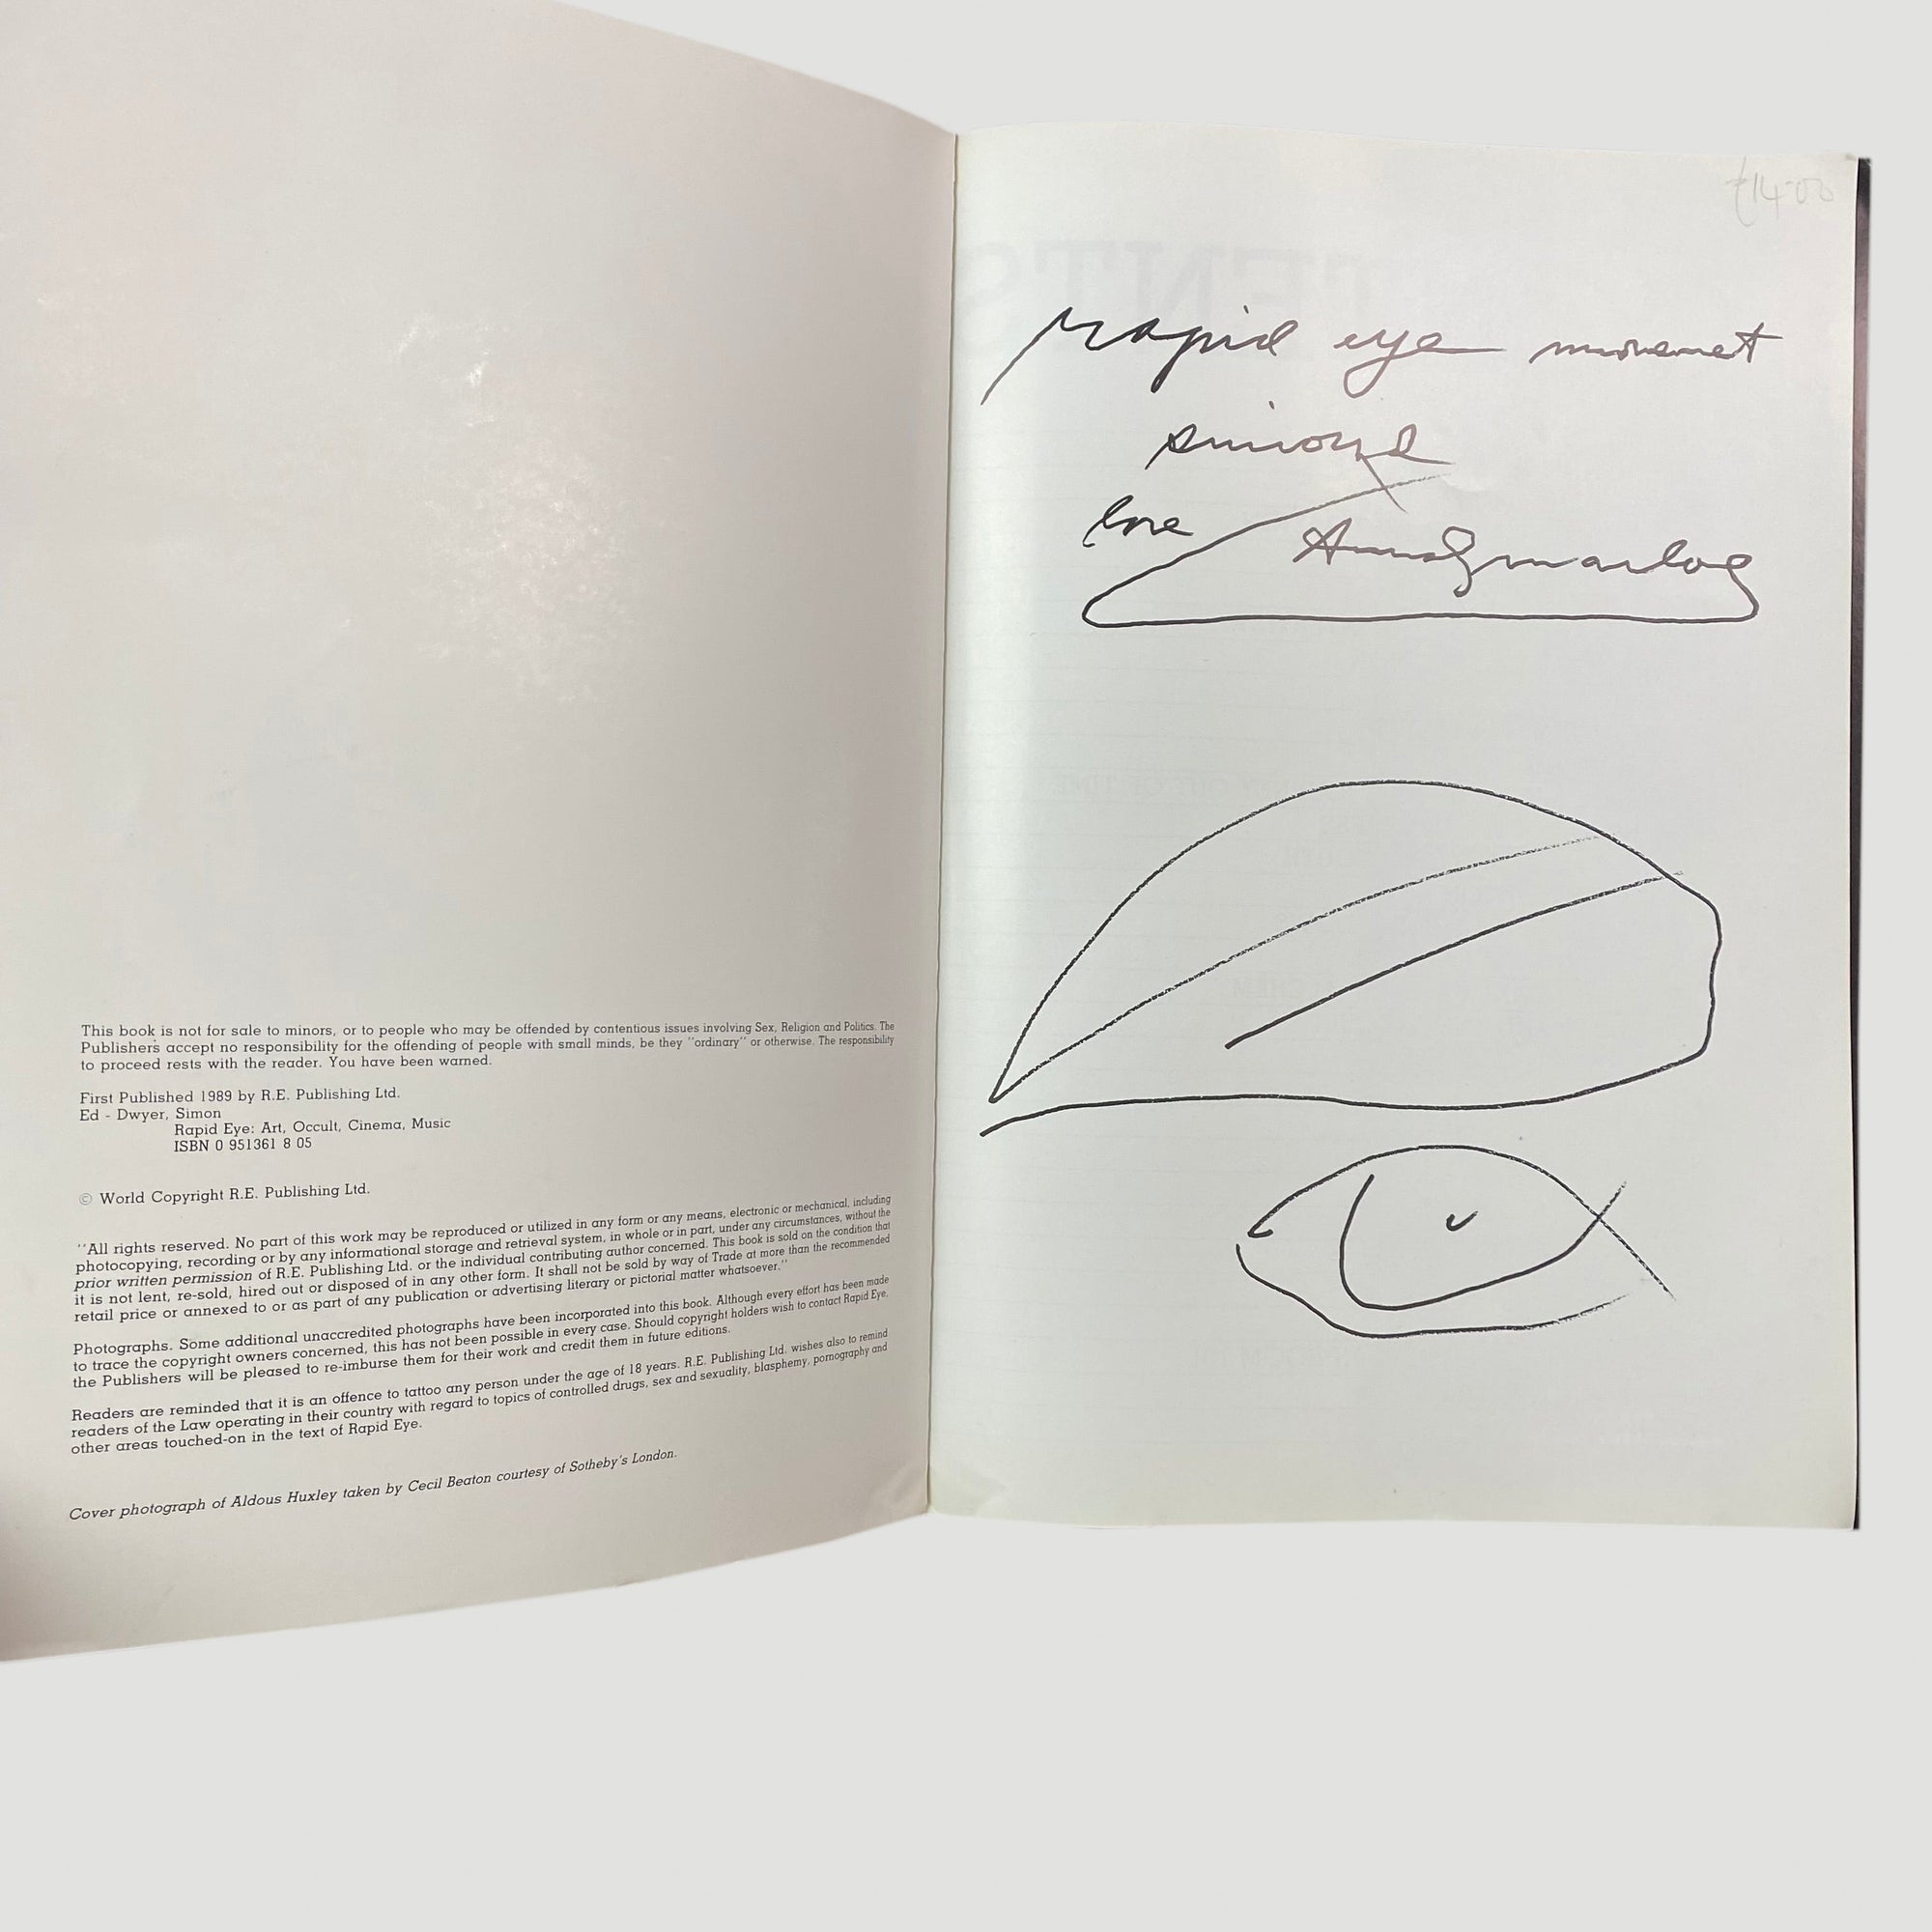 This book is not for sale to minors, or to people who may be offended by contentious issues involving Sex, Religion and Politics. The
Publishers accept no responsibility for the offending of people with small minds, be they "ordinary" or otherwise. The responsibility
to proceed rests with the reader. You have been warned.
First Published 1989 by R.E. Publishing Ltd.
Ed - Dwyer, Simon
Rapid Eye: Art, Occult, Cinema, Music
ISBN 0 951361 8 05
© World Copyright R.E. Publishing Ltd.
"All rights reserved. No part of this work may be reproduced or utilized in any form or any means, electronic or mechanical, including
photocopying, recording or by any informational storage and retrieval system, in whole or in part, under any circumstances, without the
prior written permission of R.E. Publishing Ltd. or the individual contributing author concerned. This book is sold on the condition that
it is not lent, re-sold, hired out or disposed of in any other form. It shall not be sold by way of Trade at more than the recommended
retail price or annexed to or as part of any publication or advertising literary or pictorial matter whatsoever."
Photographs. Some additional unaccredited photographs have been incorporated into this book. Although every effort has been made
to trace the copyright owners concerned, this has not been possible in every case. Should copyright holders wish to contact Rapid Eye,
the Publishers will be pleased to re-imburse them for their work and credit them in future editions.
Readers are reminded that it is an offence to tattoo any person under the age of 18 years. R.E. Publishing Ltd. wishes also to remind
readers of the Law operating in their country with regard to topics of controlled drugs, sex and sexuality, blasphemy, pornography and
other areas touched-on in the text of Rapid Eye.
Cover photograph of Aldous Huxley taken by Cecil Beaton courtesy of Sotheby's London.
£14.00
rapid eye movement
love